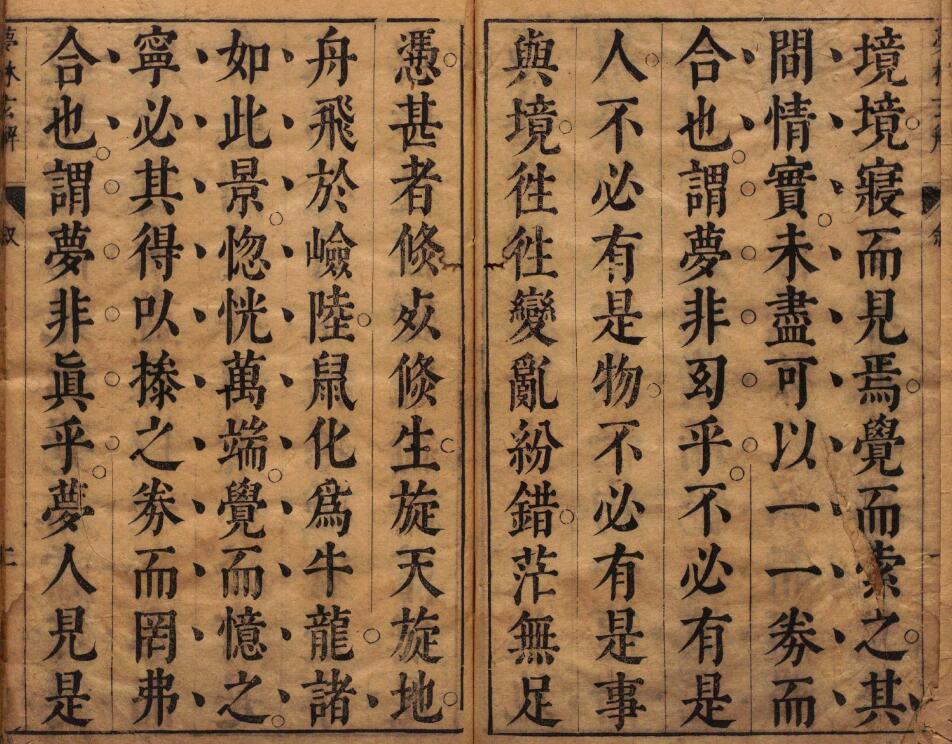 境境寢而見焉覺而索之其
間情實未盡可以一一劵而
合也謂夢非幻乎不必有是
人不必有是物不必有是事
與境徃徃變亂紛錯茫無足
憑甚者倐㱙倐生旋天旋地
舟飛於嶮陸鼠化爲牛龍諸
如此景惚恍萬端覺而憶之
寧必其得以摻之劵而罔弗
合也謂夢非眞乎夢人見是
夢林玄解
叙